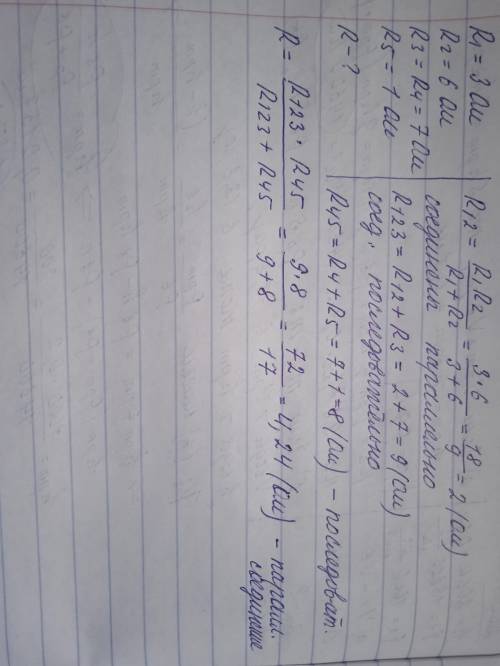 R1 = 3 Ом
R2 = 6 Ом
R3 = R4 = 7 Ом
R5 = 1 Ом
R - ?
R12 = R1R2 / R1 + R2 = 3·6 / 3+6 = 18 / 9 = 2 (Ом)
соединены параллельно
R123 = R12 + R3 = 2 + 7 = 9 (Ом)
соед. последовательно
R45 = R4 + R5 = 7 + 1 = 8 (Ом) - последоват.
R = R123 · R45 / R123 + R45 = 9·8 / 9+8 = 72 / 17 = 4,24 (Ом) - паралл.
соединение